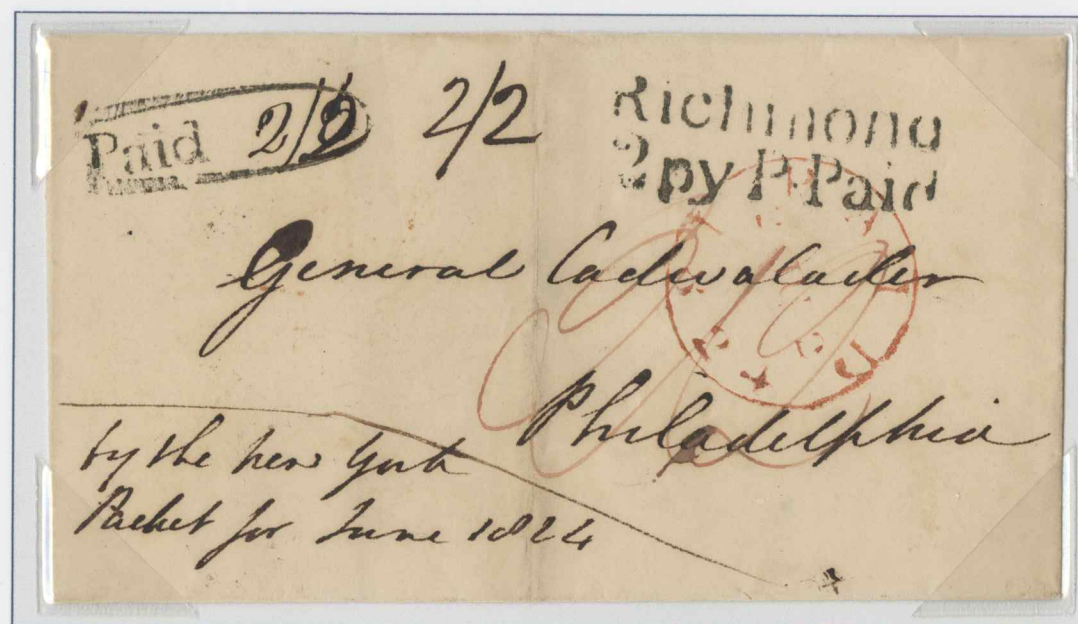 Paid 2/2
2/2
Richmond
2py P.Paid
General Cadwalader
Philadelphia
by the new York
Packet for June 1824